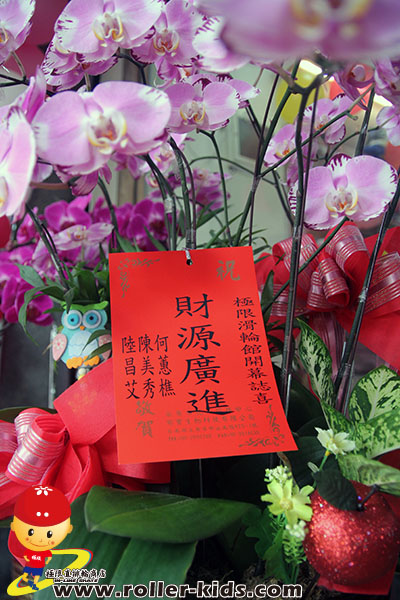 祝
極限滑輪館開幕誌喜
財源廣進
何蕙樵
陳美秀
陸昌艾
敬賀
極限直排輪商店
www.roller-kids.com